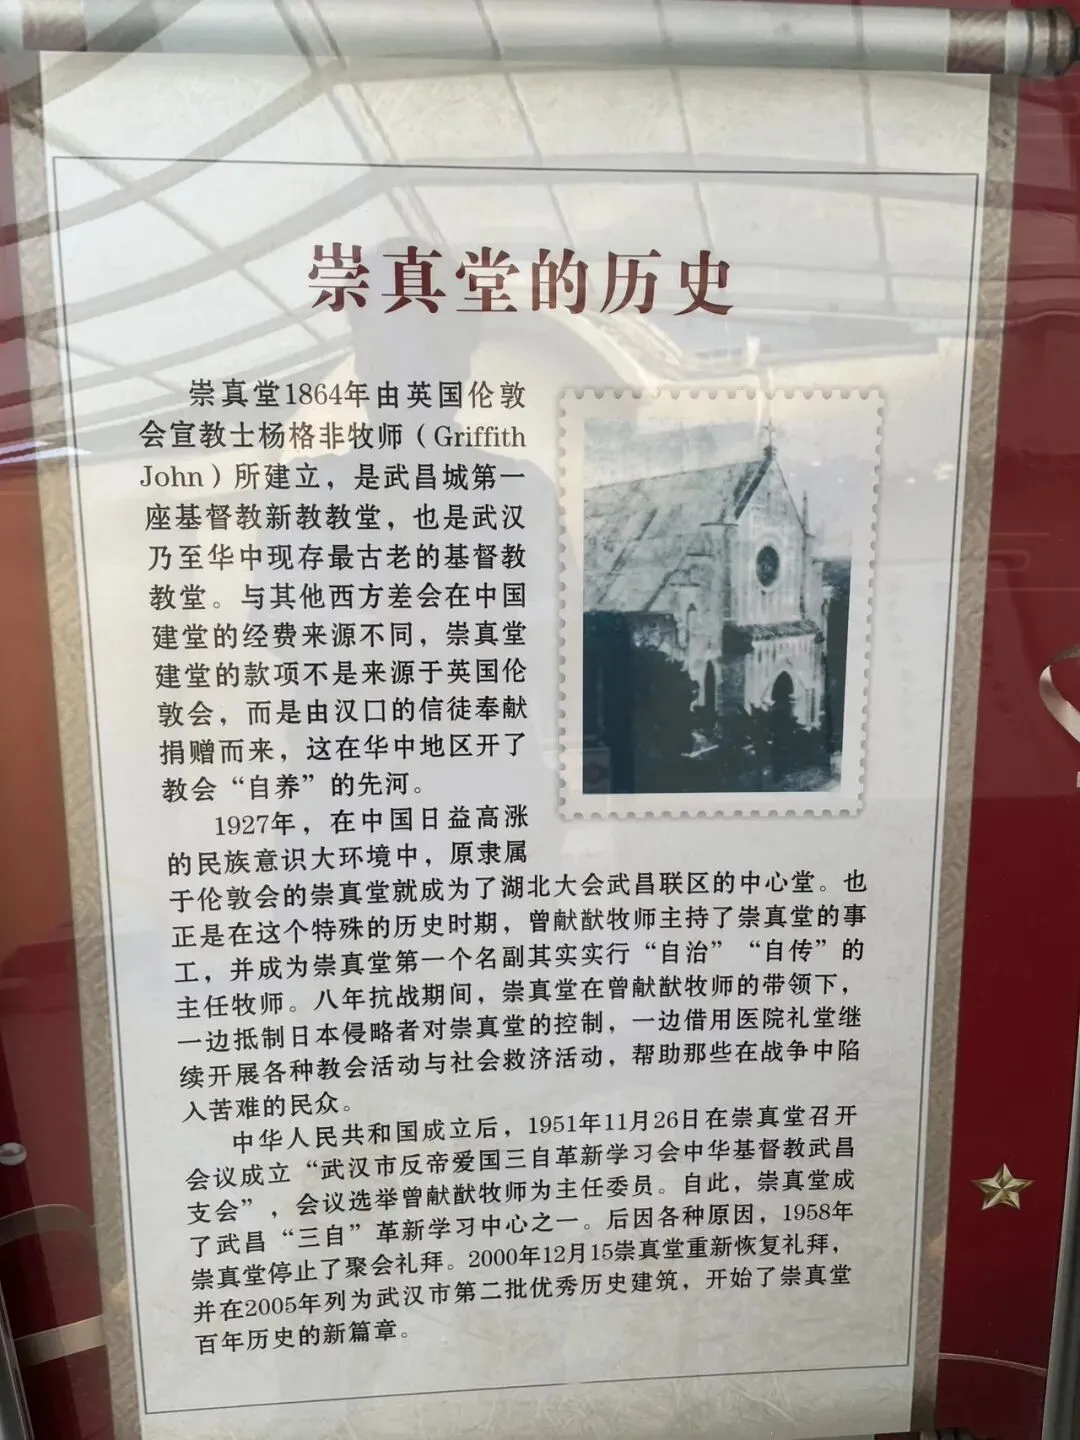 崇真堂的历史
崇真堂1864年由英国伦敦
会宣教士杨格非牧师（Griffith
John）所建立，是武昌城第一
座基督教新教教堂，也是武汉
乃至华中现存最古老的基督教
教堂。与其他西方差会在中国
建堂的经费来源不同，崇真堂
建堂的款项不是来源于英国伦
敦会，而是由汉口的信徒奉献
捐赠而来，这在华中地区开了
教会“自养”的先河。
1927年，在中国日益高涨
的民族意识大环境中，原隶属
于伦敦会的崇真堂就成为了湖北大会武昌联区的中心堂。也
正是在这个特殊的历史时期，曾献猷牧师主持了崇真堂的事
工，并成为崇真堂第一个名副其实实行“自治”“自传”的
主任牧师。八年抗战期间，崇真堂在曾献猷牧师的带领下，
一边抵制日本侵略者对崇真堂的控制，一边借用医院礼堂继
续开展各种教会活动与社会救济活动，帮助那些在战争中陷
入苦难的民众。
中华人民共和国成立后，1951年11月26日在崇真堂召开
会议成立“武汉市反帝爱国三自革新学习会中华基督教武昌
支会”，会议选举曾献猷牧师为主任委员。自此，崇真堂成
了武昌“三自”革新学习中心之一。后因各种原因，1958年
崇真堂停止了聚会礼拜。2000年12月15崇真堂重新恢复礼拜，
并在2005年列为武汉市第二批优秀历史建筑，开始了崇真堂
百年历史的新篇章。